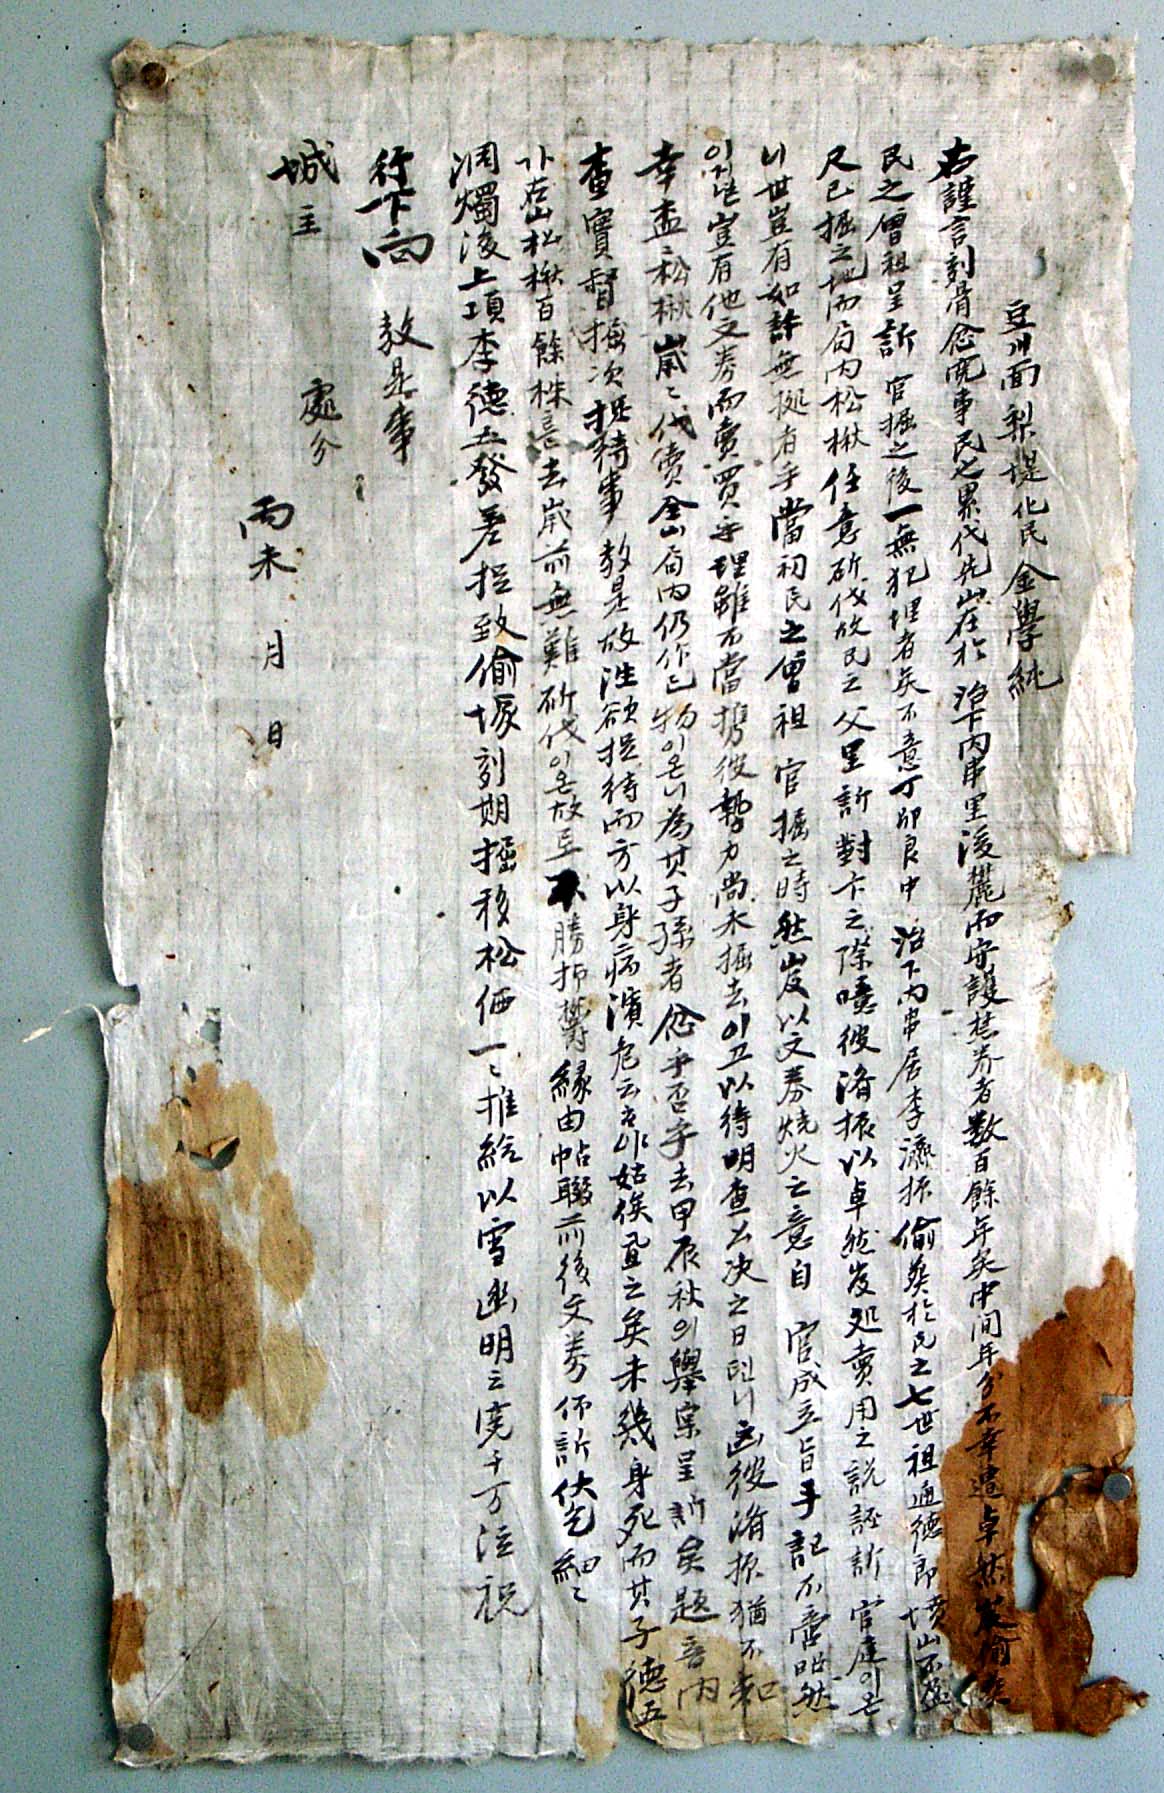 豆川面 梨堤化民 金學純
右謹言刻骨寃事民之累代先山在於 治下丙串里後麓而守護禁養者數百餘年矣中間年分不幸遭卓然岌偷葬
民之曾祖呈訴 官掘之後一無犯埋者矣不意丁卯良中 治下內串居李濟振偷葬於民之七世祖通德郎墳山不盈
尺已掘之地而局內松楸任意斫伐故民之父呈訴對卞之際噫彼濟振以卓然岌処賣用之說誣訴 官庭이온
니世豈有如許無据者乎當初民之曾祖 官掘之時然岌以文券燒火之意自 官成立旨手記不啻昭然
이거든豈有他文券而賣買乎理雖不當携彼勢力尚未掘去이고以待明查公決之日터니 凶彼濟振猶不知
幸盡松楸歲〻伐賣全山局內仍作己物이온니為其子孫者 忿乎否乎去甲辰秋의舉案呈訴矣題音內
查實督掘次捉待事 敎是故泩欲捉待而方以身病濱危云云故姑俟夏之矣未幾身死而其子德五
가右山松楸百餘株去歲前無難斫伐이온故로不勝抑鬱緣由帖聯前後文券仰訴伏乞細〻
洞燭後上項李德五發差捉致偷塚刻期掘移松価一〻推給以雪幽明之寃千万泣祝
行下向 敎是事
城主 處分
丙未 月 日